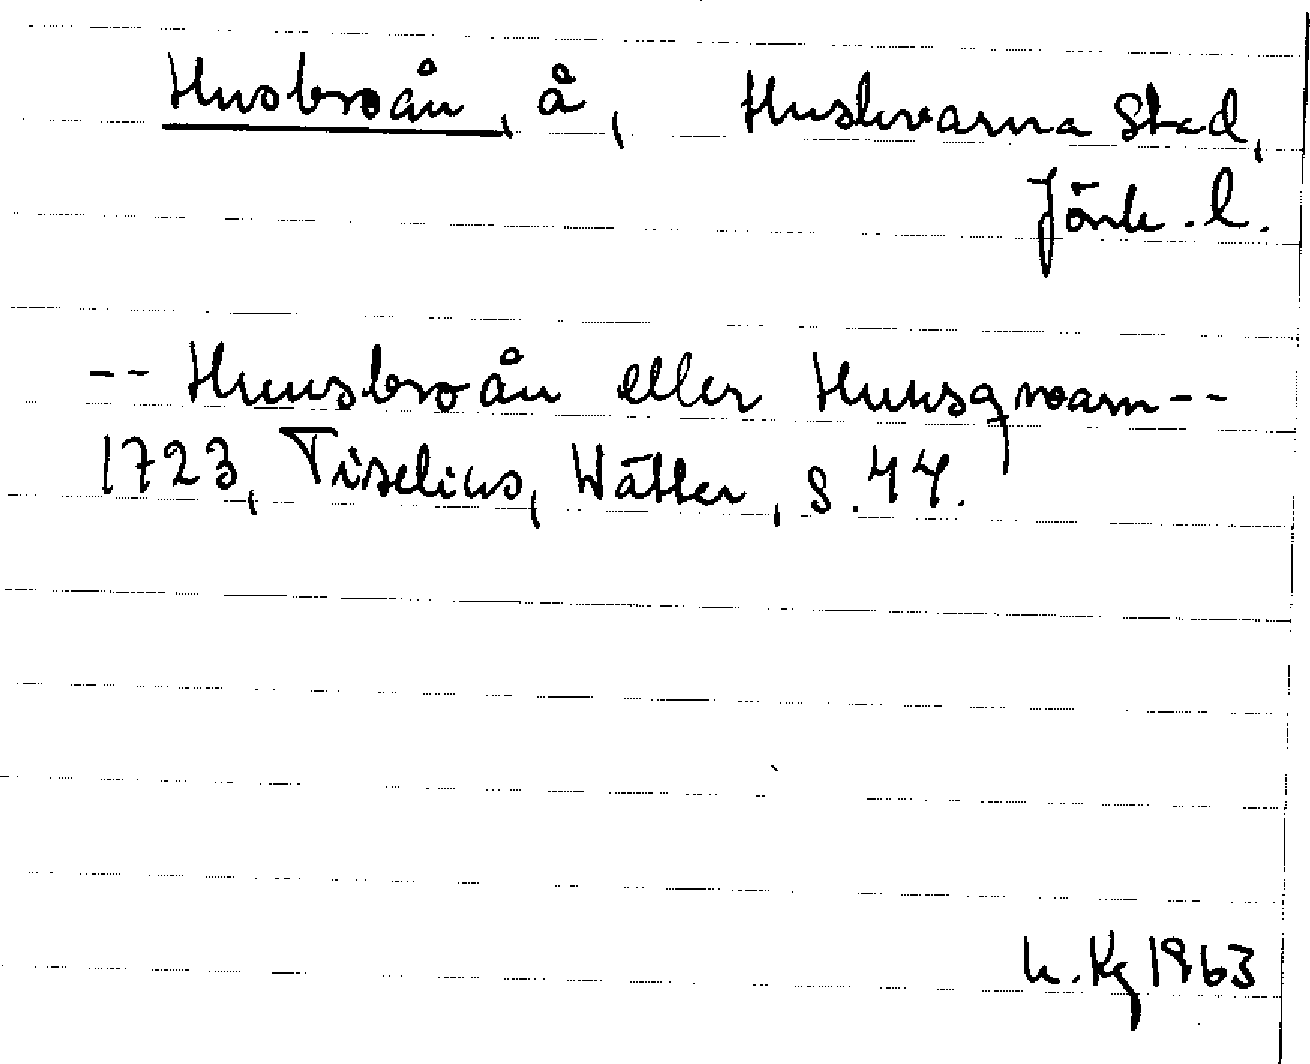 Husbroån, å, Huskvarna Stad,
Jönk. l.
-- Huusbroån eller Huusqvarn --
1723, Tiselius, Wätter, s. 44.
L. Kg 1963